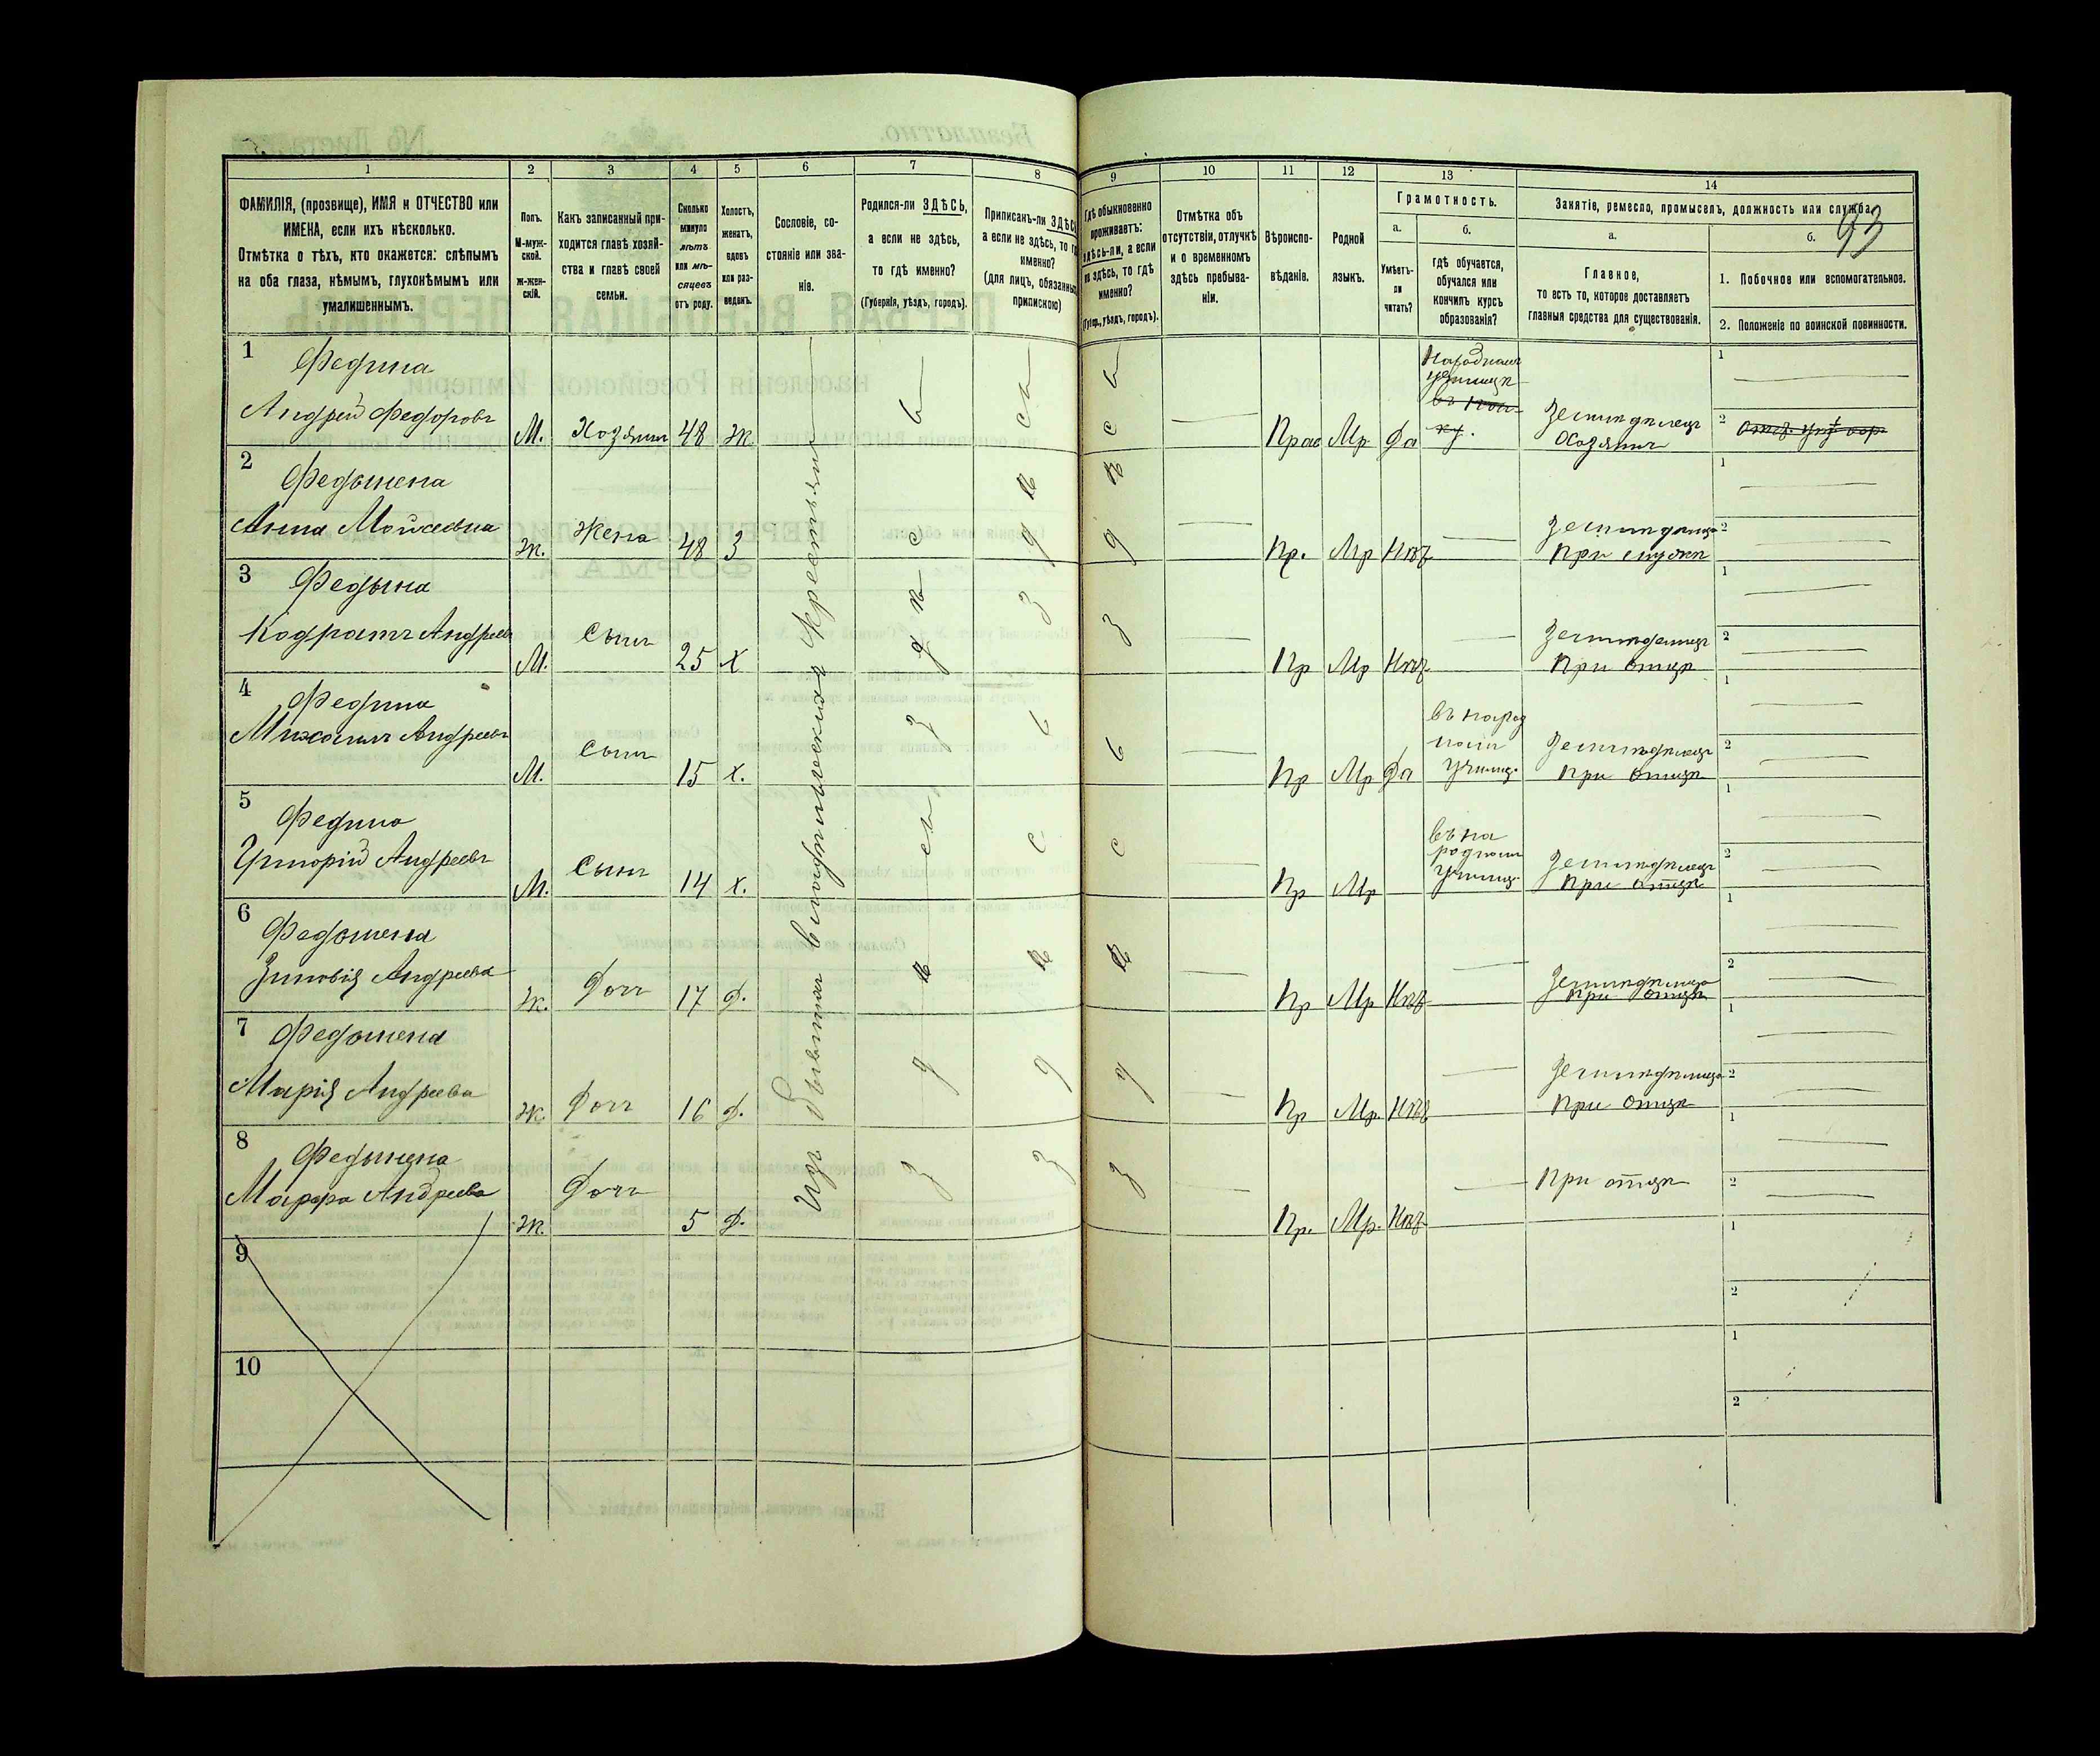 93
1
2
3
4
5
6
7
8
9
10
11
12
13
14
ФАМИЛІЯ, (прозвище), ИМЯ и ОТЧЕСТВО или
ИМЕНА, если ихъ нѣсколько.
Отмѣтка о тѣхъ, кто окажется: слѣпымъ
на оба глаза, нѣмымъ, глухонѣмымъ или
умалишеннымъ.
Полъ.
М-муж-
ской.
ж-жен-
скій.
Какъ записанный при-
ходится главѣ хозяй-
ства и главѣ своей
семьи.
Сколько
минуло
лѣтъ
или мѣ-
сяцевъ
отъ роду.
Холостъ,
женатъ,
вдовъ
или раз-
веденъ.
Сословіе, со-
стояніе или зва-
ніе.
Родился-ли ЗДѢСЬ,
а если не здѣсь,
то гдѣ именно?
(Губернія, уѣздъ, городъ).
Приписанъ-ли ЗДѢСЬ,
а если не здѣсь, то гдѣ
именно?
(для лицъ, обязанныхъ
припискою)
Гдѣ обыкновенно
проживаетъ:
здѣсь-ли, а если
не здѣсь, то гдѣ
именно?
(Губерн., уѣздъ, городъ).
Отмѣтка объ
отсутствіи, отлучкѣ
и о временномъ
здѣсь пребыва-
ніи.
Вѣроиспо-
вѣданіе.
Родной
языкъ.
Грамотность.
а.
Умѣетъ-
ли
читать?
б.
Гдѣ обучается,
обучался или
кончилъ курсъ
образованія?
Занятіе, ремесло, промыселъ, должность или служба.
а.
Главное,
то есть то, которое доставляетъ
главныя средства для существованія.
б.
1. Побочное или вспомогательное.
2. Положеніе по воинской повинности.
1
Федина
Андрей Федоровъ
М.
Хозяинъ
48
Ж
Прав
Мр
Да
Земледѣлецъ
Хозяинъ
1
2
2
Анна Моисеевна
Ж.
Жена
48
З
Пр.
Мр
Нѣт
1
2
3
Кодратъ Андреев
М.
Сынъ
25
Х
Пр
Мр
Нѣт
Земледѣлецъ
При отцѣ
1
2
4
Федина
Михаилъ Андреевъ
М.
Сынъ
15
Х.
Пр
Мр
Да
въ народ
номъ
училищ.
Земледѣлецъ
При отцѣ
1
2
5
Федина
Григорій Андреевъ
М.
Сынъ
14
Х.
Пр
Мр
въ на
родномъ
училищ.
Земледѣлецъ
При отцѣ
1
2
6
Зиновія Андреева
Ж.
Доч
17
Д.
Пр
Мр
Нѣт
При отцѣ
1
2
7
Марія Андреева
Ж.
Доч
16
Д.
Пр
Мр.
Нѣт
При отцѣ
1
2
8
Марфа Андреева
Ж.
Доч
5
Д.
Пр.
Мр.
Нѣт
При отцѣ
1
2
Изъ бывшихъ владѣльческихъ крестьянъ
здѣсь
здѣсь
здѣсь
9
1
2
10
1
2